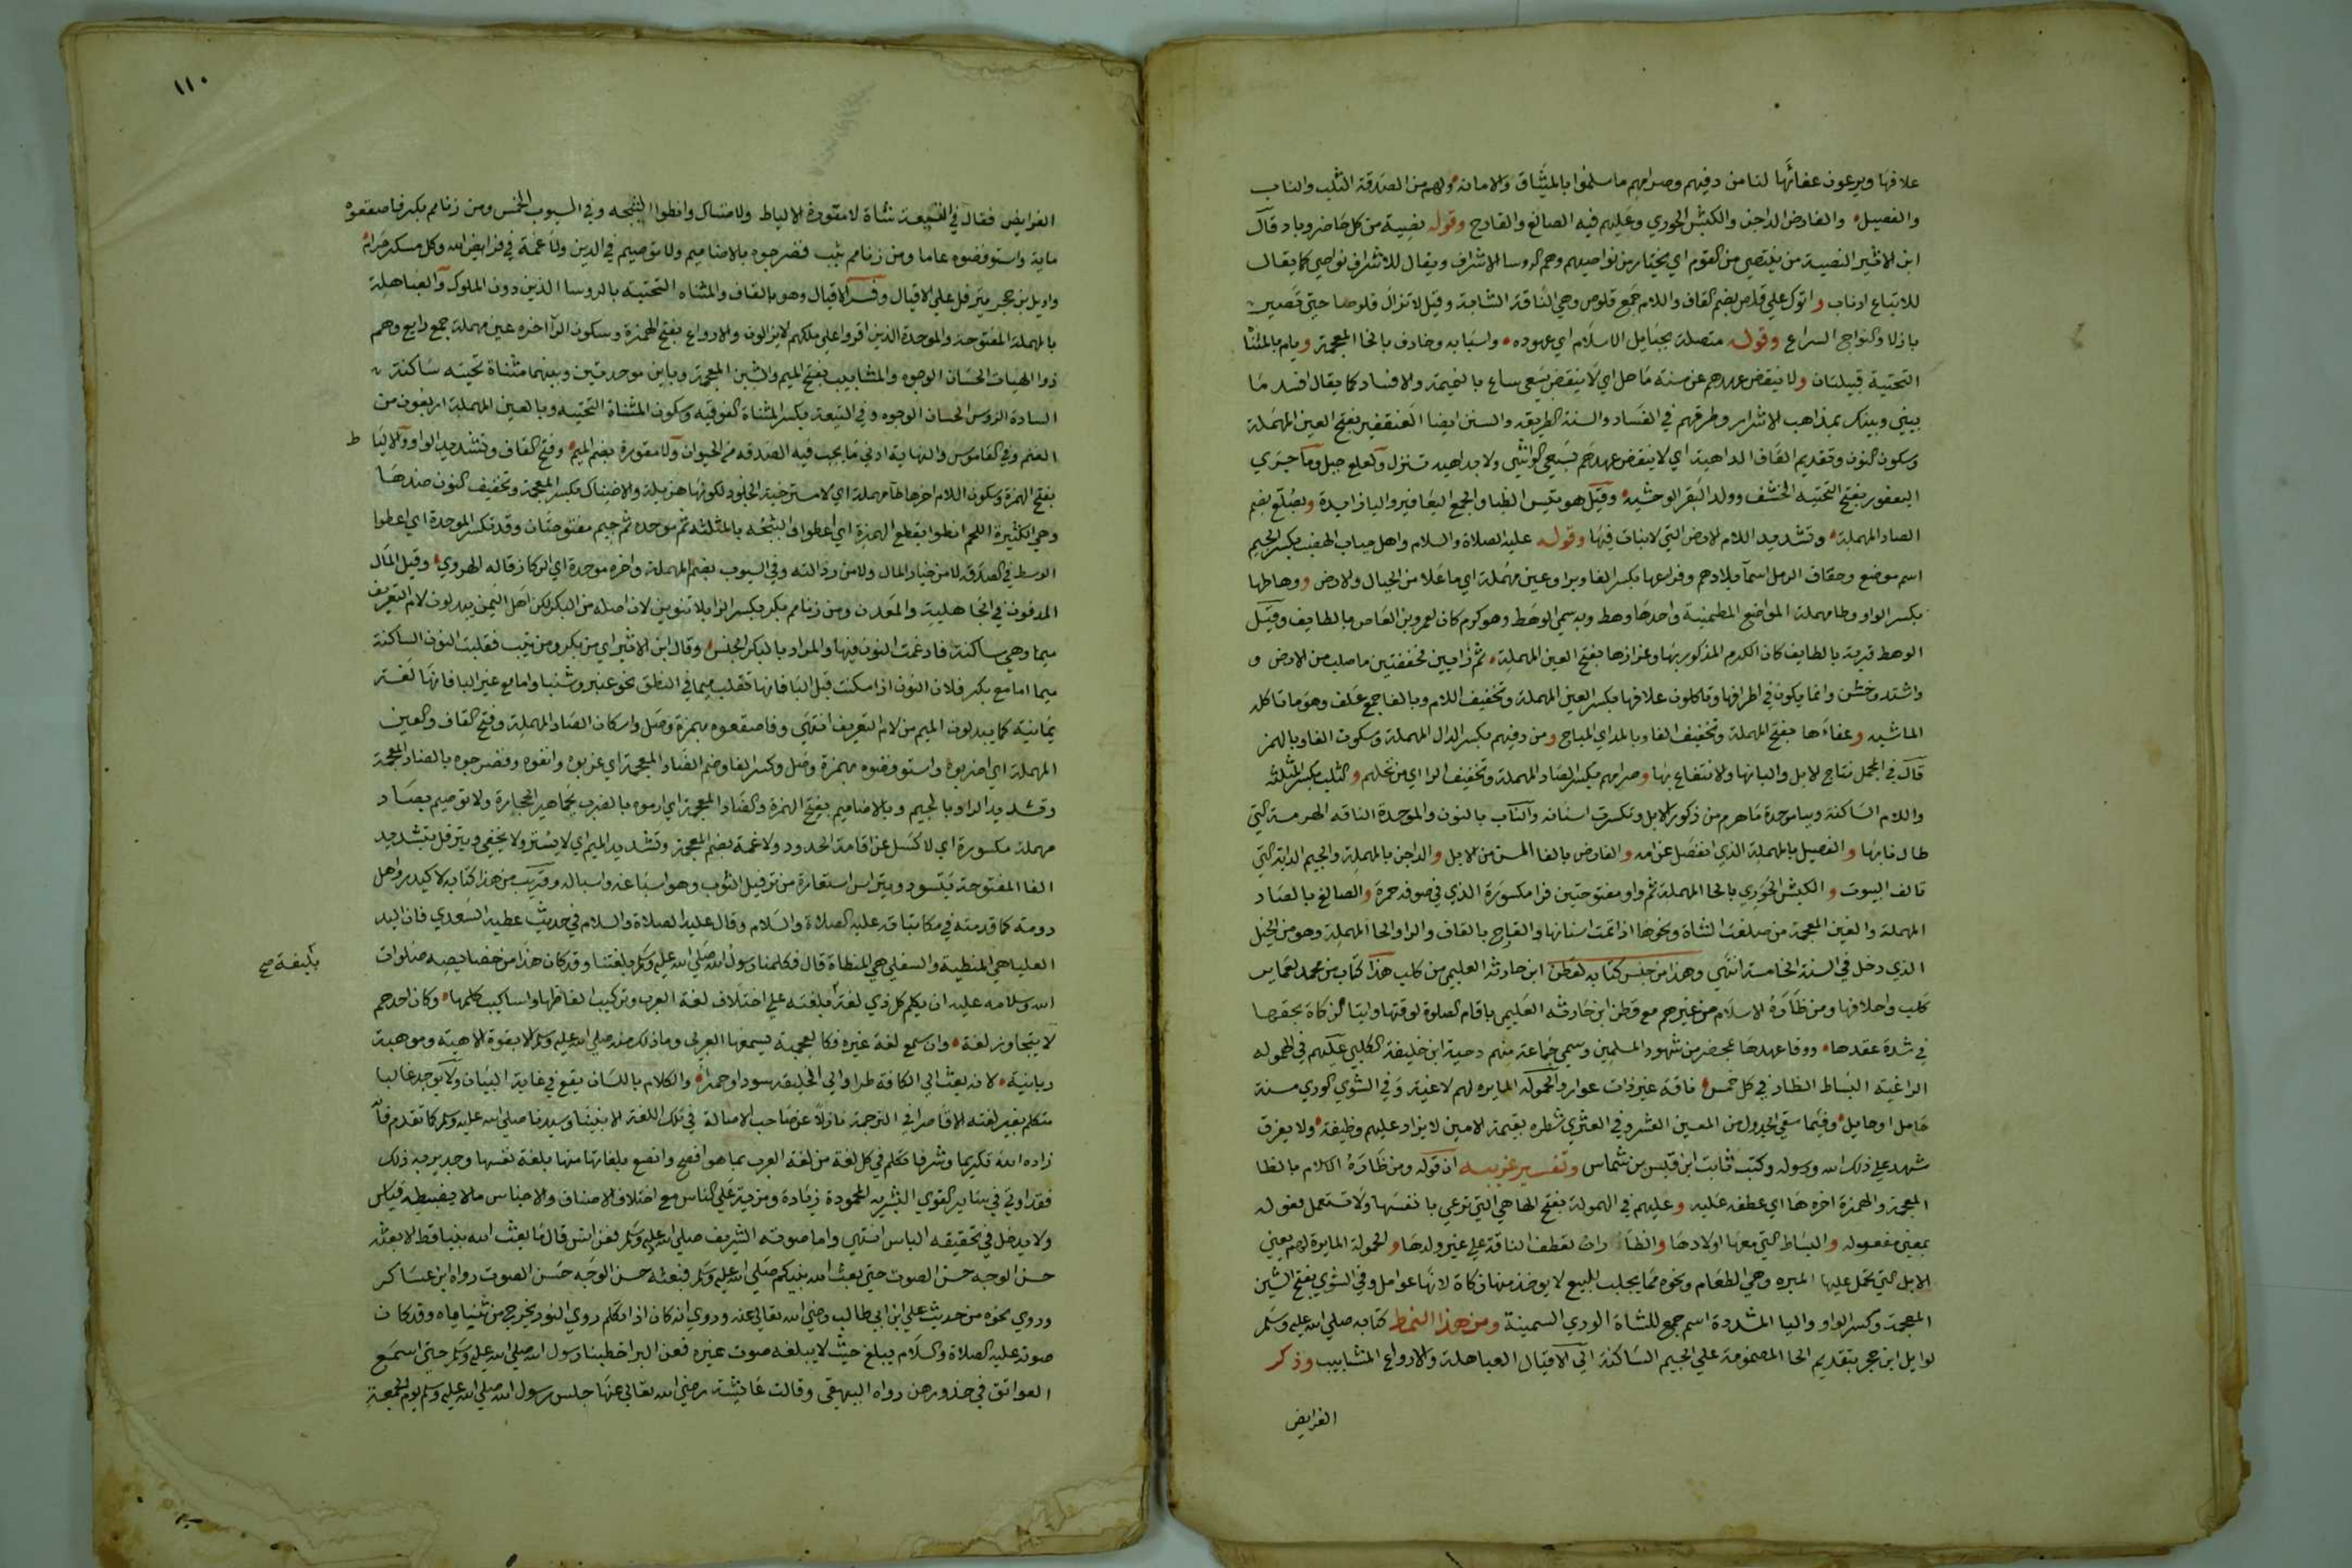 علافها ويرعون عفائها لنا من دفئهم وصرامهم ما سلموا بالميثاق والامانة ولهم من الصدقة الثلب والناب
والفصيل والفارض الداجن والكبش الحوري وعليهم فيه الصالغ والقارح وقوله نصية من كل حاضر وباد قال
ابن الاثير النصية من ينتصى من القوم اي يختار من نواصيهم وهم الروسا الاشراف ويقال للاشراف نواصي كما يقال
للاتباع اذناب واتوك على قلص بضم القاف واللام جمع قلوص وهي الناقة الشابة وقيل لا تزال قلوصا حتى تصير
بازلا والنواج السراع وقوله متصلة بحبايل الاسلام اي عهوده واسبابه وخارف بالخا المعجمة ويام بالمثناة
التحتية قبيلتان ولا ينقض عهدهم عن سنة ماحل اي لا ينقض بسعي ساع بالنميمة والافساد كما يقال افسد ما
بيني وبينك بمذاهب الاشرار وطرقهم في الفساد والسنة الطريقة والسنن ايضا العنقفير بفتح العين المهملة
وسكون النون وتقديم القاف الداهية اي لا ينقض عهدهم بسعي الواشي ولا بداهية تنزل ولعلع جبل وما جري
اليعفور بفتح التحتية الخشف وولد البقر الوحشية وقيل هو تيس الظبا والجمع اليعافير واليا زايدة وبصلع بضم
الصاد المهملة وتشديد اللام الارض التي لا نبات فيها وقوله عليه الصلاة والسلام واهل جناب الهضب بكسر الجيم
اسم موضع وحقاف الرمل اسما بلادهم وفراعها بكسر الفا وبرا وعين مهملة اي ما علا من الجبال والارض ووهاطها
بكسر الواو وطا مهملة المواضع المطمئنة واحدها وهط وبه سمي الوهط وهو كرم كان لعمرو بن العاص بالطايف وقيل
الوهط قرية بالطايف كان الكرم المذكور بها وعزازها بفتح العين المهملة ثم زايين مخففتين ما صلب من الارض و
واشتد وخشن وانما يكون في اطرافها وتاكلون علافها بكسر العين المهملة وتخفيف اللام وبالفا جمع علف وهو ما تاكله
الماشية وعفاءها بفتح المهملة وتخفيف الفا وبالمد اي المباح ومن دفئهم بكسر الدال المهملة وسكون الفا وبالهمز
قال في المجمل نتاج الابل والبانها والانتفاع بها وصرامهم بكسر الصاد المهملة وتخفيف الرا اي من نخلهم والثلب بكسر المثلثة
واللام الساكنة وبيا موحدة ما هرم من ذكور الابل وتكسرت اسنانه والناب بالنون والموحدة الناقة الهرمة التي
طال نابها والفصيل بالمهملة الذي انفصل عن امه والفارض بالفا المسن من الابل والداجن بالمهملة والجيم الدابة التي
تالف البيوت والكبش الحوري بالحا المهملة ثم واو مفتوحتين فرا مكسورة الذي في صوفه حمرة والصالغ بالصاد
المهملة والغين المعجمة من صلغت الشاة ونحوها اذا تمت اسنانها والقارح بالقاف والرا والحا المهملة وهو من الخيل
الذي دخل في السنة الخامسة انتهى وهذا من جنس كتابه لقطن ابن حارثة العليمي من كلب هذا كتاب من محمد لعمائر
كلب واحلافها ومن ظأره الاسلام من غيرهم مع قطن ابن حارثة العليمي باقام الصلوة لوقتها وايتا الزكاة بحقها
في شدة عقدها ووفا عهدها بمحضر من شهود المسلمين وسمي جماعة منهم دحية ابن خليفة الكلبي عليهم في الهمولة
الراعية البساط الظار في كل خمس ناقة غير ذات عوار والحمولة المايرة لهم لاغية وفي الشوي الوري مسنة
حامل او حايل وفيما سقى الجدول من المعين العشر وفي العثري شطره بقيمة الامين لا يزاد عليهم وظيفة ولا يفرق
شهد على ذلك الله ورسوله وكتب ثابت ابن قيس بن شماس وتفسير غريبه ان قوله ومن ظأره الاسلام بالظا
المعجمة والهمزة اخره ها اي عطفه عليه وعليهم في الهمولة بفتح الها هي التي ترعى بانفسها ولا تستعمل فعوله
بمعنى مفعولة والبساط التي معها اولادها والظأر ان تعطف الناقة على غير ولدها والحمولة المايرة لهم يعني
الابل التي تحمل عليها الميرة وهي الطعام ونحوه مما يجلب للبيع لا يوخذ منها زكاة لانها عوامل وفي الشوي بفتح الشين
المعجمة وكسر الواو واليا المشددة اسم جمع للشاة الوري السمينة ومن هذا النمط كتابه صلى الله عليه وسلم
لوايل ابن حجر بتقديم الحا المضمومة على الجيم الساكنة الى الاقيال العباهلة والارواع المشابيب وذكر
الفرايض
١١٠
الفرايض فقال في التيعة شاة لا مقورة الالياط ولا ضناك وانطوا الثبجه وفي السيوب الخمس ومن زنا مم بكر فاصقعوه
ماية واستوفضوه عاما ومن زنا مم ثيب فضرجوه بالاضاميم ولا توصيم في الدين ولا غمة في فرايض الله وكل مسكر حرام
ووايل بن حجر يترفل على الاقيال وفسر الاقيال وهو بالقاف والمثناه التحتية بالروسا الذين دون الملوك والعباهلة
بالمهملة المفتوحة والموحدة الذين اقروا على ملكهم لا يزالون والارواع بفتح الهمزة وسكون الرا اخره عين مهملة جمع رايع وهم
ذوا الهيات الحسان الوجوه والمشابيب بفتح الميم والشين المعجمة وبباين موحدتين وبينهما مثناة تحتيه ساكنة
السادة الروس الحسان الوجوه وفي التيعة بكسر المثناة الفوقيه وسكون المثناة التحتيه وبالعين المهملة اربعون من
الغنم وفي القاموس والنهاية ادنى ما يجب فيه الصدقه من الحيوان ولا مقورة بضم الميم وفتح القاف وتشديد الواو والالياط
بفتح الهمزة وسكون اللام اخرها طا مهملة اي لا مسترخية الجلود لكونها هزيلة والاضناك بكسر المعجمة وتخفيف النون ضدها
وهي الكثيرة اللحم انطوا بقطع الهمزة اي اعطوا والثبجه بالمثلثه ثم موحده ثم جيم مفتوحتان وقد تكسر الموحدة اي اعطوا
الوسط في الصدقه لا من خيار المال ولا من رذالته وفي السيوب بضم المهملة واخره موحدة اي الركاز قاله الهروي وقيل المال
المدفون في الجاهلية والمعدن ومن زنا مم بكر بكسر الرا بلا تنوين لان اصله من البكر لكن اهل اليمن يبدلون لام التعريف
ميما وهي ساكنة فادغمت النون فيها والمراد بالبكر الجنس وقال ابن الاثير اي من بكر ومن ثيب فقلبت النون الساكنة
ميما اما مع بكر فلان النون اذا سكنت قبل البا فانها تقلب ميما في النطق نحو عنبر وشنبا واما مع غير البا فانها لغة
يمانية كما يبدلون الميم من لام التعريف انتهى وفاصقعوه بهمزة وصل واسكان الصاد المهملة وفتح القاف والعين
المهملة اي اضربوه واستوفضوه بهمزة وصل وكسر الفا وضم الضاد المعجمة اي غربوه وانفوه وفضرجوه بالضاد المعجمة
وتشديد الرا وبالجيم وبالاضاميم بفتح الهمزة والضاد المعجمة اي ارموه بالضرب بجماهير الحجارة ولا توصيم بصاد
مهملة مكسورة اي لا كسل عن اقامة الحدود ولا غمة بضم المعجمة وتشديد الميم اي لا يستر ولا يخفى ويترفل بتشديد
الفا المفتوحة يتسود ويتراس استعارة من ترفيل الثوب وهو اسباغه واسباله وقريب من هذا كتابه لاكيدر واهل
دومة كما قدمته في مكاتباته عليه الصلاة والسلام وقال عليه الصلاة والسلام في حديث عطيه السعدي فان اليد
العليا هي المنطية والسفلى هي المنطاة قال فكلمنا رسول الله صلى الله عليه وسلم بلغتنا وقد كان هذا من خصايصه صلوات
الله وسلامه عليه ان يكلم كل ذي لغة بلغته على اختلاف لغة العرب وتركيب الفاظها واساليب كلمها وكان احدهم
لا يتجاوز لغته وان سمع لغة غيره فكالعجمية يسمعها العربي وما ذلك منه صلى الله عليه وسلم الا بقوة الاهية وموهبة
ربانية لانه بعث الى الكافة طرا والى الخليقة سودا وحمرا والكلام باللسان يقع في غاية البيان ولا يوجد غالبا
متكلم بغير لغته الا قاصرا في الترجمة نازلا عن صاحب الاصالة في تلك اللغة الا نبينا وسيدنا صلى الله عليه وسلم كما تقدم فانه
زاده الله تكريما وشرفا تكلم في كل لغة من لغة العرب بما هو افصح وانصع بلغاتها منها بلغة نفسها وجدير به ذلك
فقد اوتي في ساير القوى البشريه المحمودة زيادة ومزية على الناس مع اختلاف الاصناف والاجناس مالا يضبطه قياس
ولا يدخل في تحقيقه الباس انتهى واما صوته الشريف صلى الله عليه وسلم فعن انس قال ما بعث الله نبيا قط الا بعثه
حسن الوجه حسن الصوت حتى بعث الله نبيكم صلى الله عليه وسلم فبعثه حسن الوجه حسن الصوت رواه ابن عساكر
وروي نحوه من حديث علي ابن ابي طالب رضي الله تعالى عنه وروي انه كان اذا تكلم روي النور يخرج من ثناياه وقد كان
صوته عليه الصلاة والسلام يبلغ حيث لا يبلغه صوت غيره فعن البرا خطبنا رسول الله صلى الله عليه وسلم حتى اسمع
العواتق في خدورهن رواه البيهقي وقالت عائشة رضي الله تعالى عنها جلس رسول الله صلى الله عليه وسلم يوم الجمعة
ط
بليغة صح